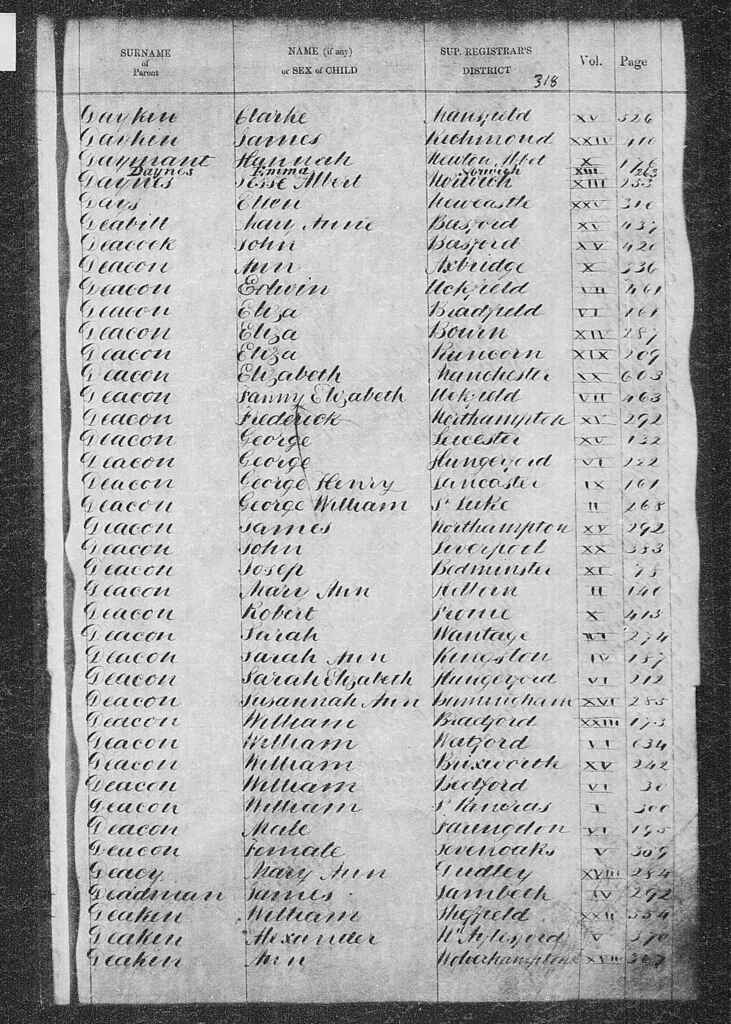 SURNAME of Parent NAME (if any) or SEX of CHILD SUP. REGISTRAR'S DISTRICT Vol. Page
318
Daykin Clarke Mansfield XV 526
Daykin James Richmond XXIV 410
Daymant Hannah Newton Abbot X 176
Daynes Emma Norwich XIII 263
Daynes Jesse Albert Norwich XIII 253
Days Ellen Newcastle XXV 310
Deabill Mary Anne Basford XV 437
Deacock John Basford XV 420
Deacon Ann Axbridge X 336
Deacon Edwin Uckfield VII 461
Deacon Eliza Bradfield VI 161
Deacon Eliza Bourn XIV 287
Deacon Eliza Runcorn XIX 209
Deacon Elizabeth Manchester XX 603
Deacon Fanny Elizabeth Uckfield VII 463
Deacon Frederick Northampton XV 292
Deacon George Leicester XV 132
Deacon George Hungerford VI 222
Deacon George Henry Lancaster IX 161
Deacon George William St Luke II 268
Deacon James Northampton XV 292
Deacon John Liverpool XX 333
Deacon Josep Bedminster XI 75
Deacon Mary Ann Holborn II 140
Deacon Robert Frome X 413
Deacon Sarah Wantage VI 274
Deacon Sarah Ann Kingston IV 157
Deacon Sarah Elizabeth Hungerford VI 212
Deacon Susannah Ann Birmingham XVI 255
Deacon William Bradford XXIII 173
Deacon William Watford VI 634
Deacon William Brixworth XV 242
Deacon William Bedford VI 30
Deacon William St Pancras I 300
Deacon Male Faringdon VI 195
Deacon Female Sevenoaks V 309
Deacy Mary Ann Dudley XVIII 284
Deadman James Lambeth IV 292
Deaken William Sheffield XXII 554
Deaken Alexander W. Aylesford V 370
Deaken Ann Wolverhampton XVII 307